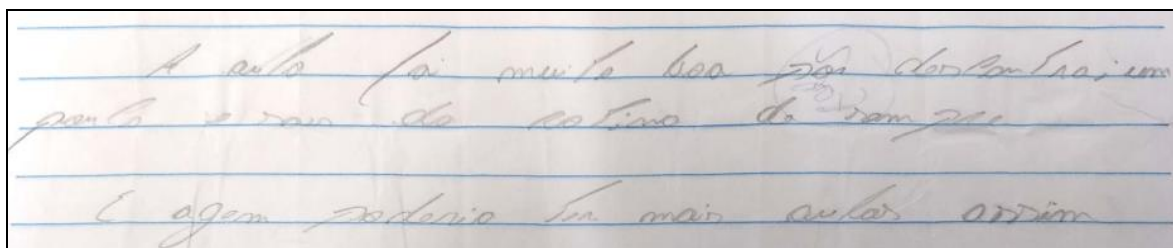 A aula foi muito boa pois descontrai um
pouco e sair da rotina de sempre
E agem poderia ter mais aulas assim